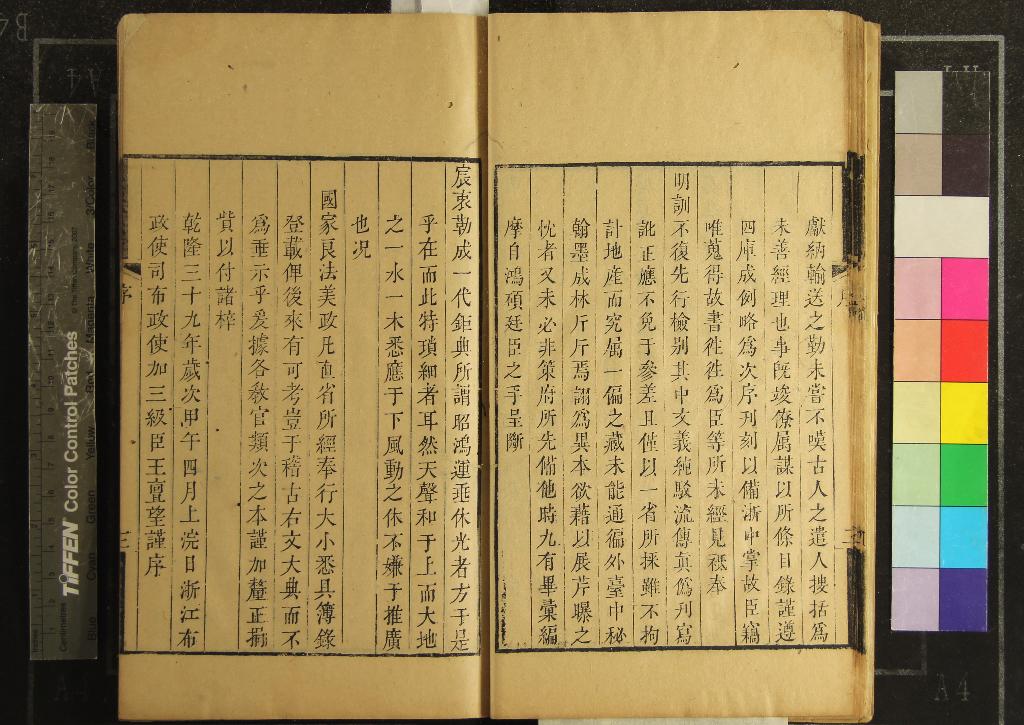 獻納輸送之勤未嘗不嘆古人之遣人搜括爲
未善經理也事旣竣僚属謀以所條目錄謹遵
四庫成例略爲次序刋刻以備浙中掌故臣竊
唯蒐得故書徃徃爲臣等所未經見祇奉
明訓不復先行檢别其中文義純駁流傳真僞刋寫
訛正應不免于參差且僅以一省所採雖不拘
計地産而究屬一偏之藏未能通徧外臺中秘
翰墨成林斤斤焉詡爲異本欲藉以展芹曝之
忱者又未必非策府所先備他時九有畢彙編
摩自鴻碩廷臣之手呈斷
序
宸衷勒成一代鉅典所謂昭鴻運垂休光者方于是
乎在而此特瑣細者耳然天聲和于上而大地
之一水一木悉應于下風動之休不嫌于推廣
也况
國家良法美政凡直省所經奉行大小悉具簿錄
登載俾後來有可考豈于稽古右文大典而不
爲垂示乎爰據各敎官類次之本謹加釐正捐
貲以付諸梓
乾隆三十九年歲次甲午四月上浣日浙江布
政使司布政使加三級臣王亶望謹序
序
三
TIFFEN Color Control Patches
Blue
Cyan
Green
Yellow
Red
Magenta
White
3/Color
Black
Centimetres
Inches
A4
B4